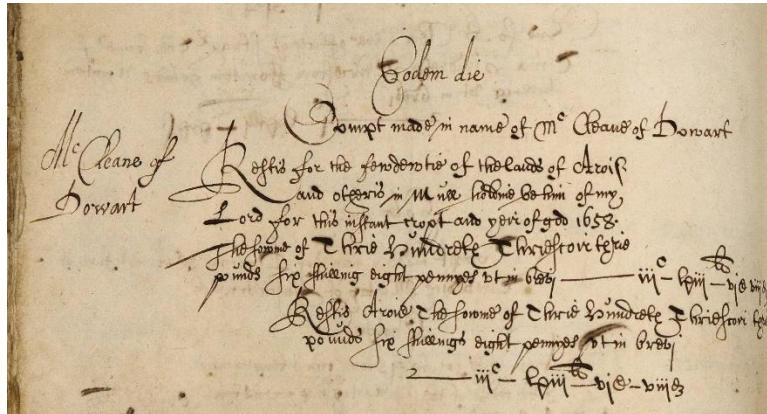 Eodem die
Mc Cleane of
Dowart
Compt made in name of Mc Cleane of Dowart
Restis for the fewdewtie of the lands of Arois
and otheris in Mull holdine be him of my
Lord for this instant cropt and yeir of god 1658
The sowme of Thrie Hundreth Thriescoir thrie
punds six shilling eight pennyes ut in brevi —— iiic – lxiii lb – vis viiid
Restis Arois The sowme of Thrie Hundreth Thriescoir thrie
pounds six shillings eight pennyes ut in brevi
—— iiic – lxiii lb – vis – viiid